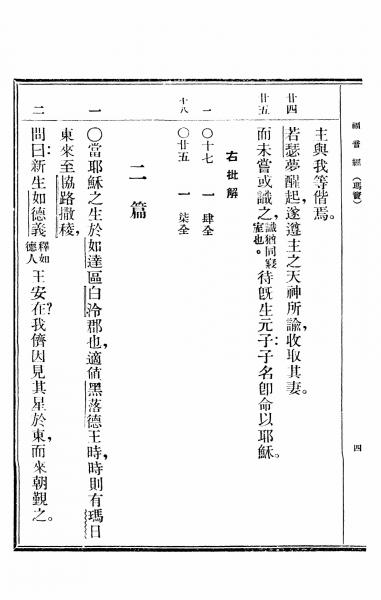 福音經（瑪竇）
四
主與我等偕焉。
廿四 若瑟夢醒起，遂遵主之天神所諭，收取其妻。
廿五 而未嘗或識之，識猶同寢室也。待旣生元子：子名卽命以耶穌。
右批解
一 〇十七 一 肆全
十八 〇廿五 一 柒全
二篇
一 〇當耶穌之生於如達區白泠郡也，適値黑落德王時，時則有瑪日
東來至協路撒稜，
二 問曰：新生如德義釋如德人王安在？我儕因見其星於東，而來朝覲之。